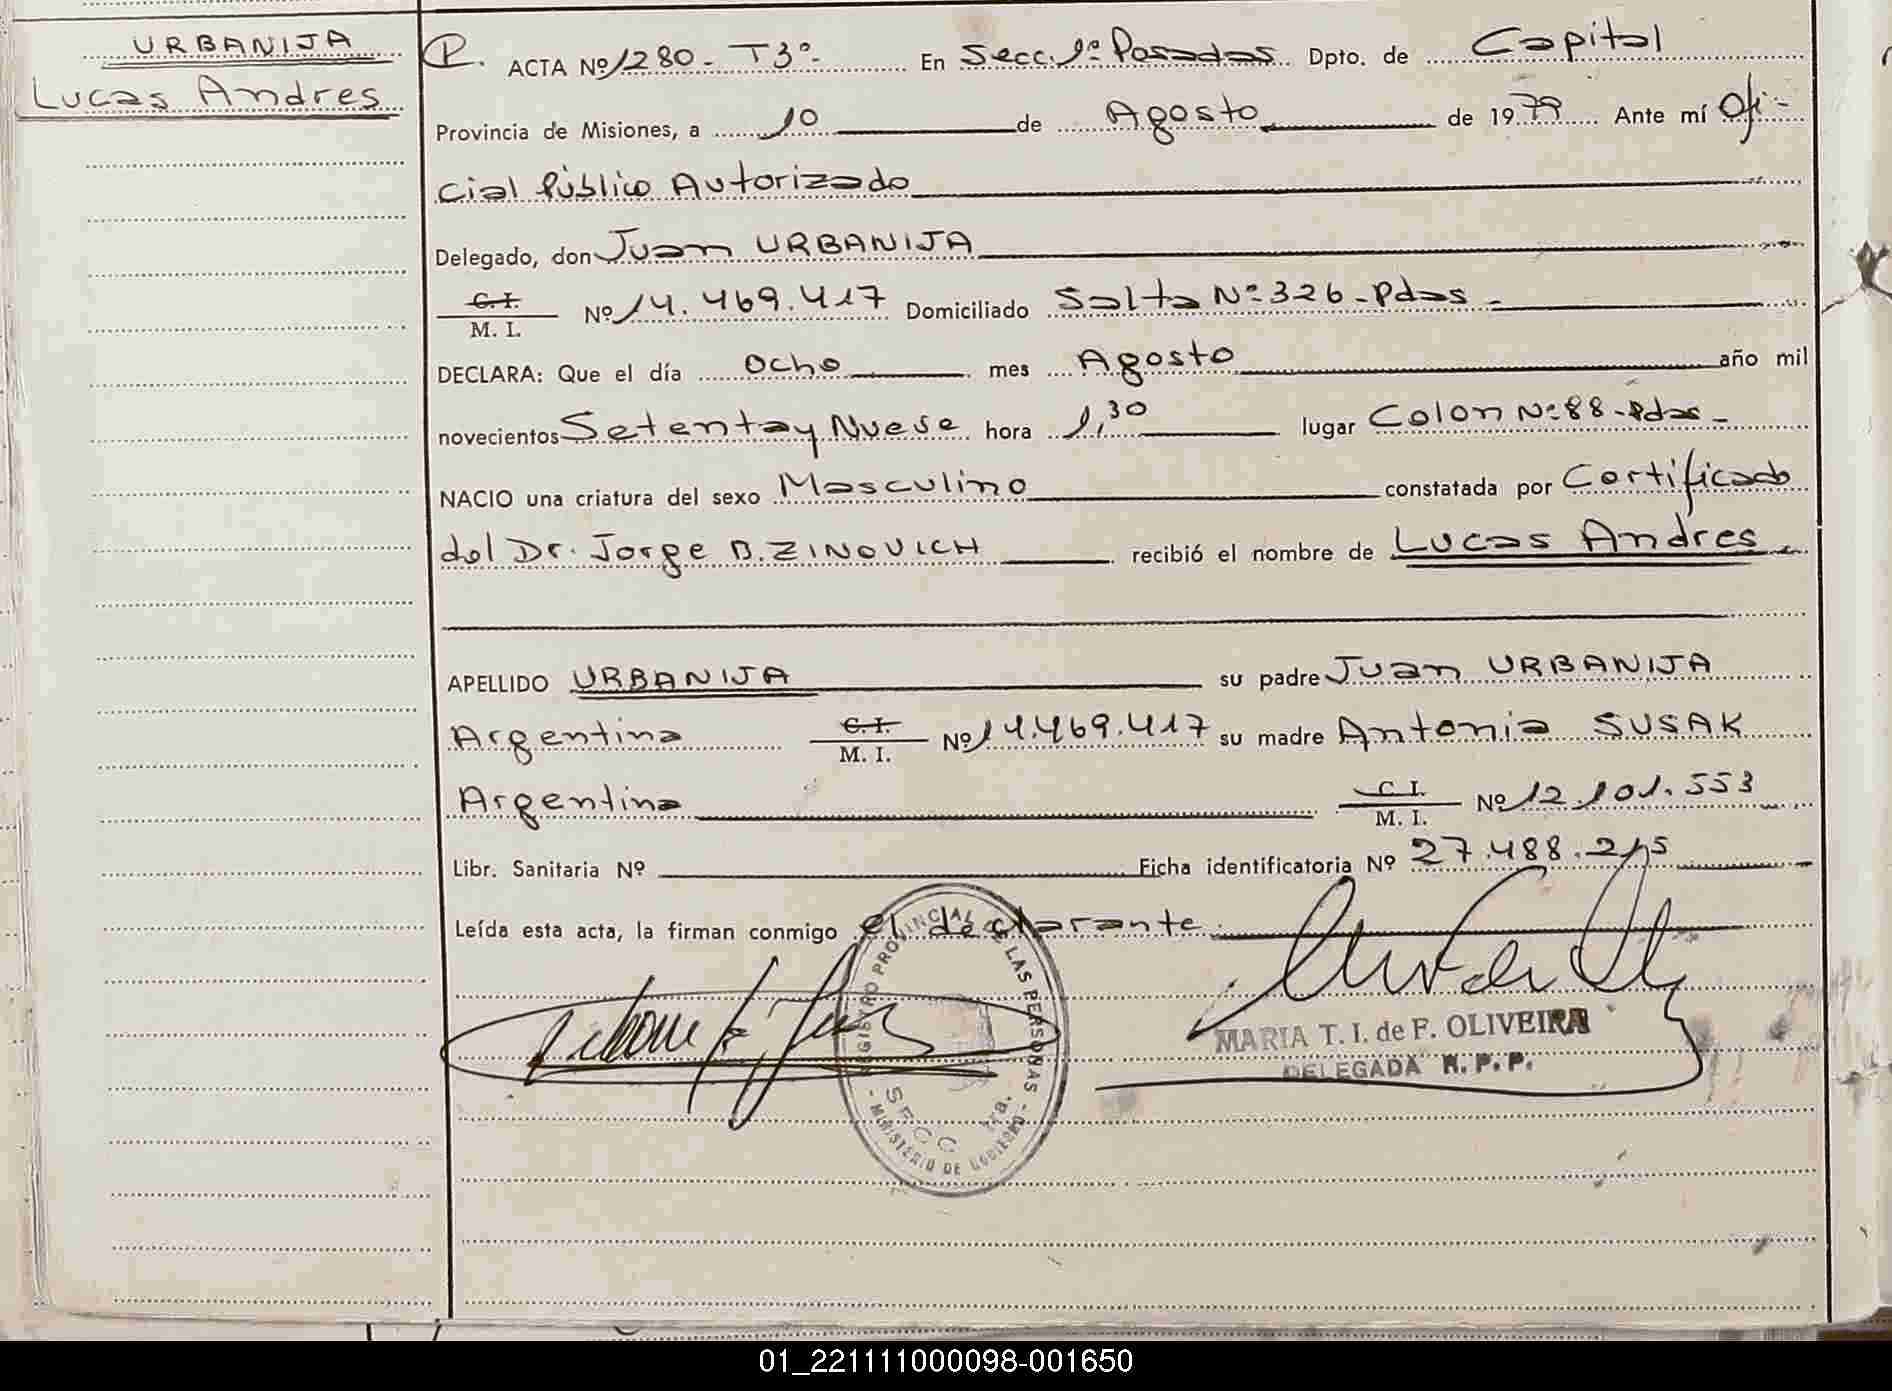 URBANIJA
Lucas Andres
P. ACTA Nº 1280 - T3º - En Secc. 1º Posadas Dpto. de Capital
Provincia de Misiones, a 10 de Agosto de 1979 Ante mí Ofi-
cial Público Autorizado
Delegado, don Juan URBANIJA
C.I.
M. I. Nº 14.469.417 Domiciliado Salta Nº 326 - Pdas -
DECLARA: Que el día Ocho mes Agosto año mil
novecientos Setenta y Nueve hora 1,30 lugar Colon Nº 88 - Pdas -
NACIO una criatura del sexo Masculino constatada por Certificado
del Dr. Jorge B. ZINOVICH recibió el nombre de Lucas Andres
APELLIDO URBANIJA su padre Juan URBANIJA
Argentino C.I. M. I. Nº 14.469.417 su madre Antonia SUSAK
Argentina C. I. M. I. Nº 12.101.553
Libr. Sanitaria Nº Ficha identificatoria Nº 27.488.215
Leída esta acta, la firman conmigo el declarante
REGISTRO PROVINCIAL DE LAS PERSONAS
SECC 1ra.
- MINISTERIO DE GOBIERNO -
MARIA T. I. de F. OLIVEIRA
DELEGADA R. P. P.
01_221111000098-001650